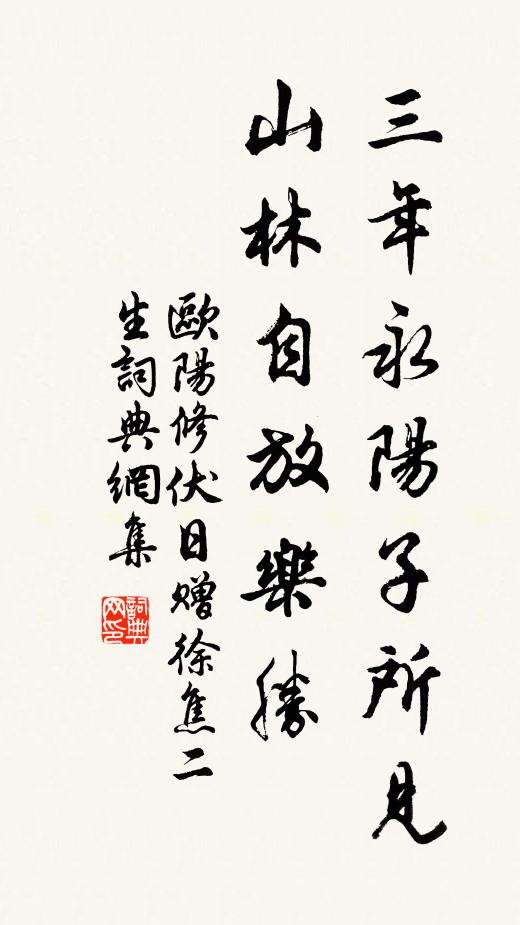 三年永陽子所見
山林自放樂勝
歐陽修伏日贈徐焦二
生詞典網集
詞典
网印